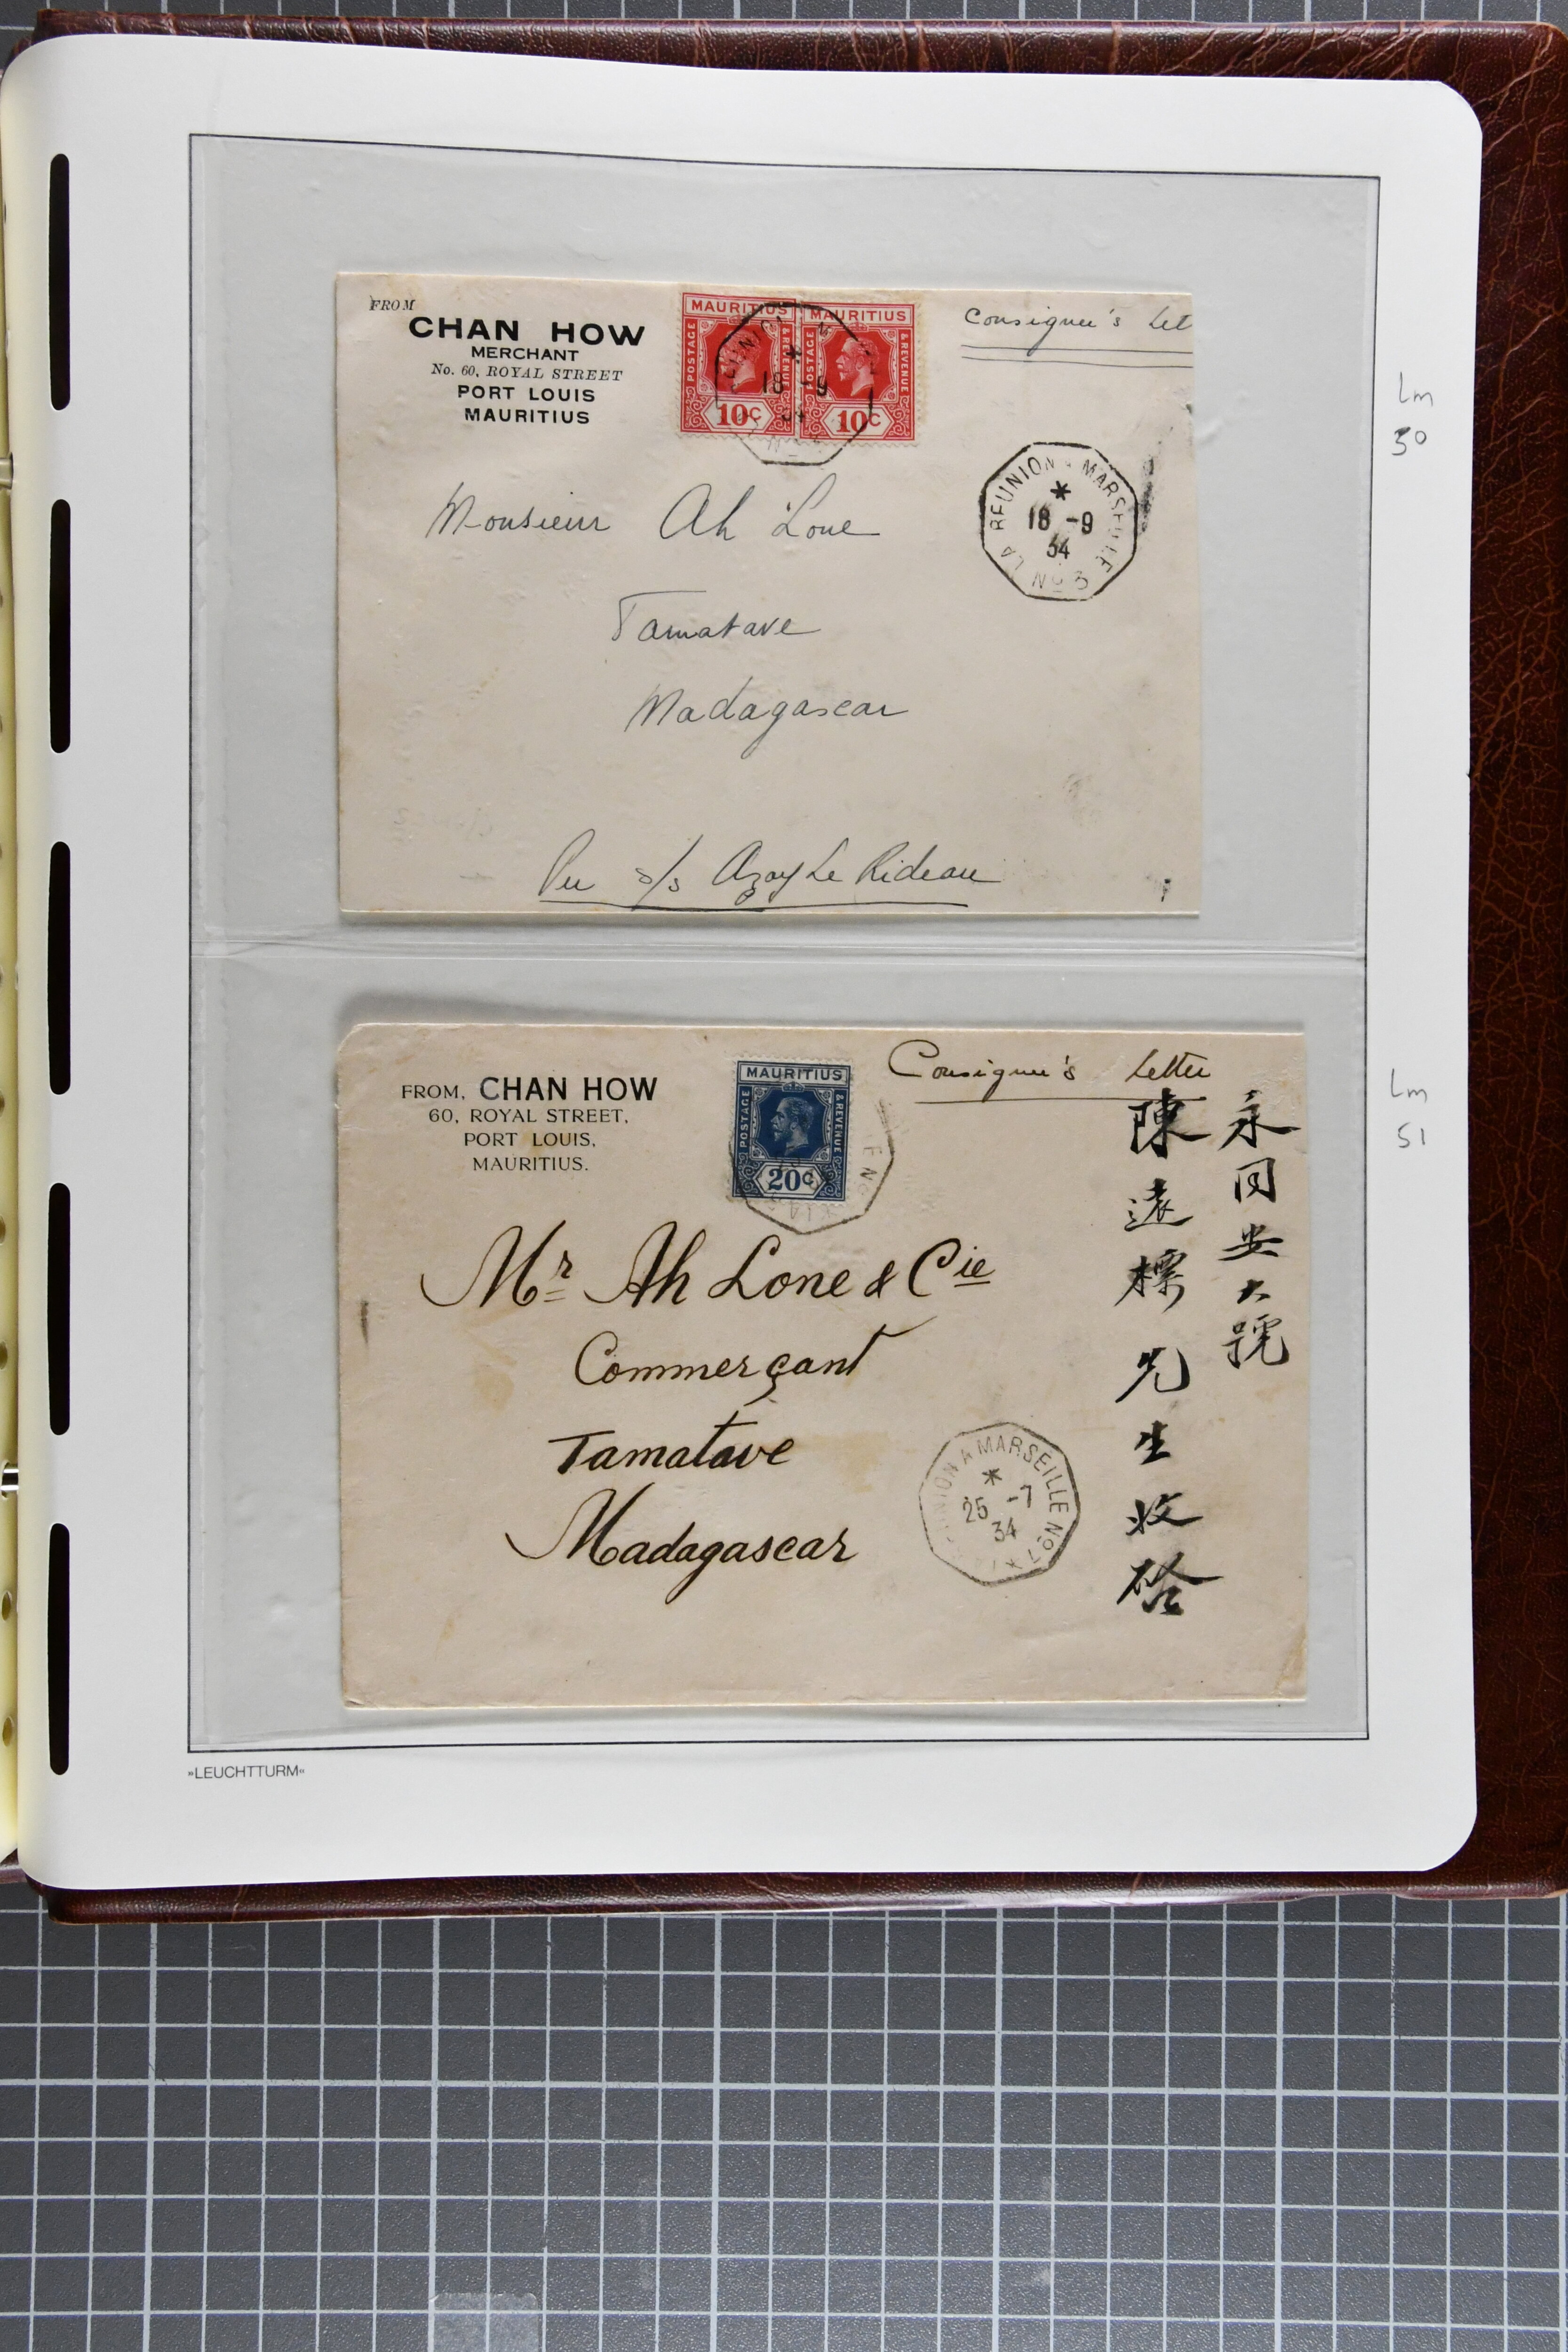 FROM
CHAN HOW
MERCHANT
No. 60, ROYAL STREET
PORT LOUIS
MAURITIUS
MAURITIUS MAURITIUS
POSTAGE & REVENUE POSTAGE & REVENUE
10c 10c
18 -9
34
Consignee's Let
LA REUNION A MARSEILLE
18 -9
34
No 3
Monsieur Ah Lone
Tamatave
Madagascar
Per s/s Azay Le Rideau
Lm
50
FROM, CHAN HOW
60, ROYAL STREET,
PORT LOUIS,
MAURITIUS.
MAURITIUS
POSTAGE & REVENUE
20c
Consignee's Letter
永同安大號
陳遠標先生收啓
Mr Ah Lone & Cie
Commerçant
Tamatave
Madagascar
UNION A MARSEILLE No 1
25 -7
34
Lm
51
»LEUCHTTURM«